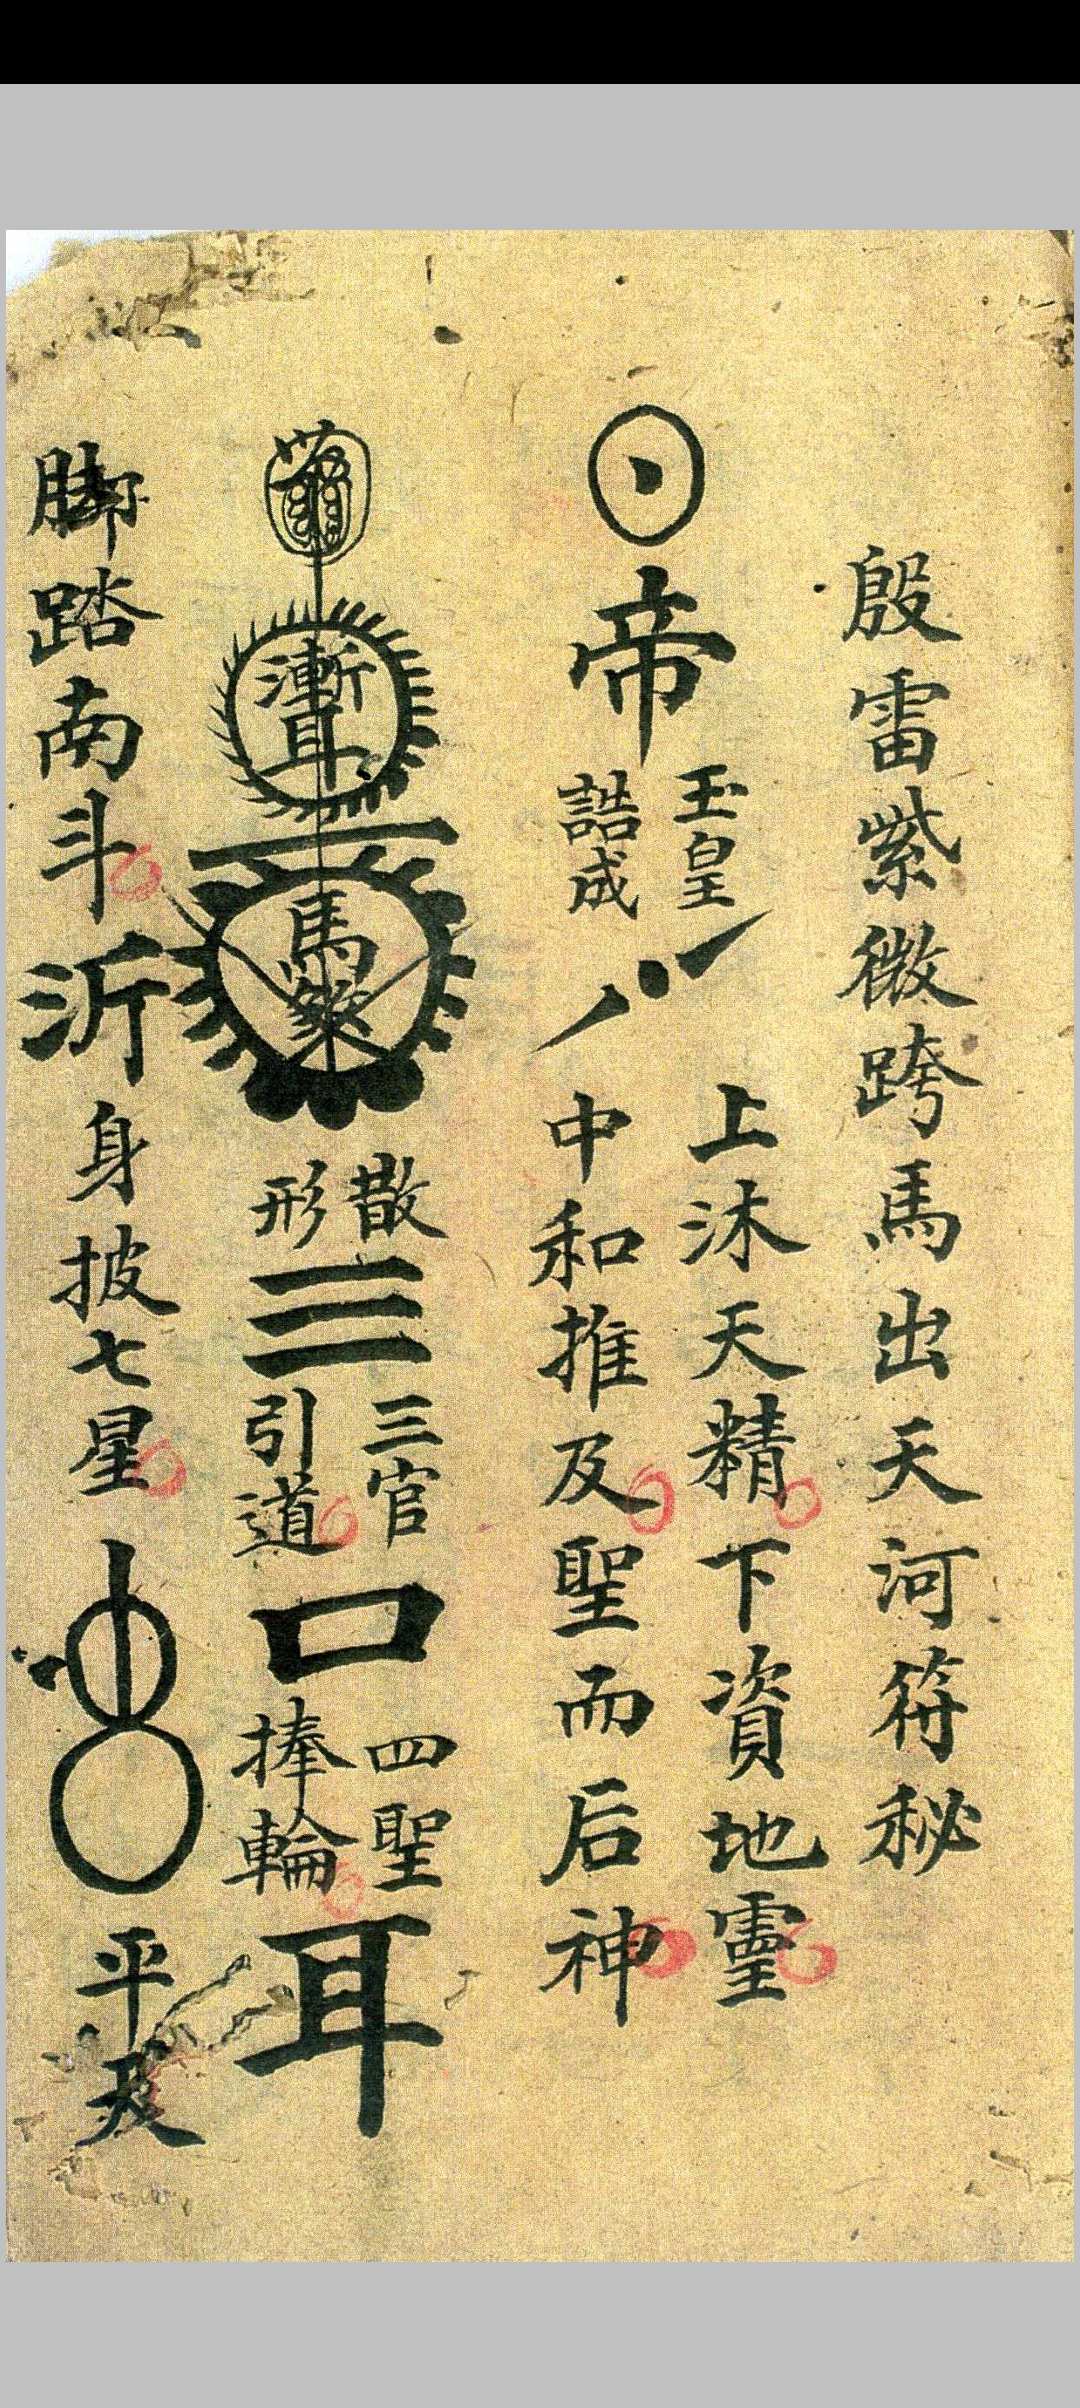 殷雷紫微跨馬出天河符秘
帝
玉皇
誥成
上沐天精
下資地靈
中和推及
聖而后神
馬
散
形
三
三官
引道
口
四聖
捧輪
耳
脚踏南斗
沂
身披七星
平